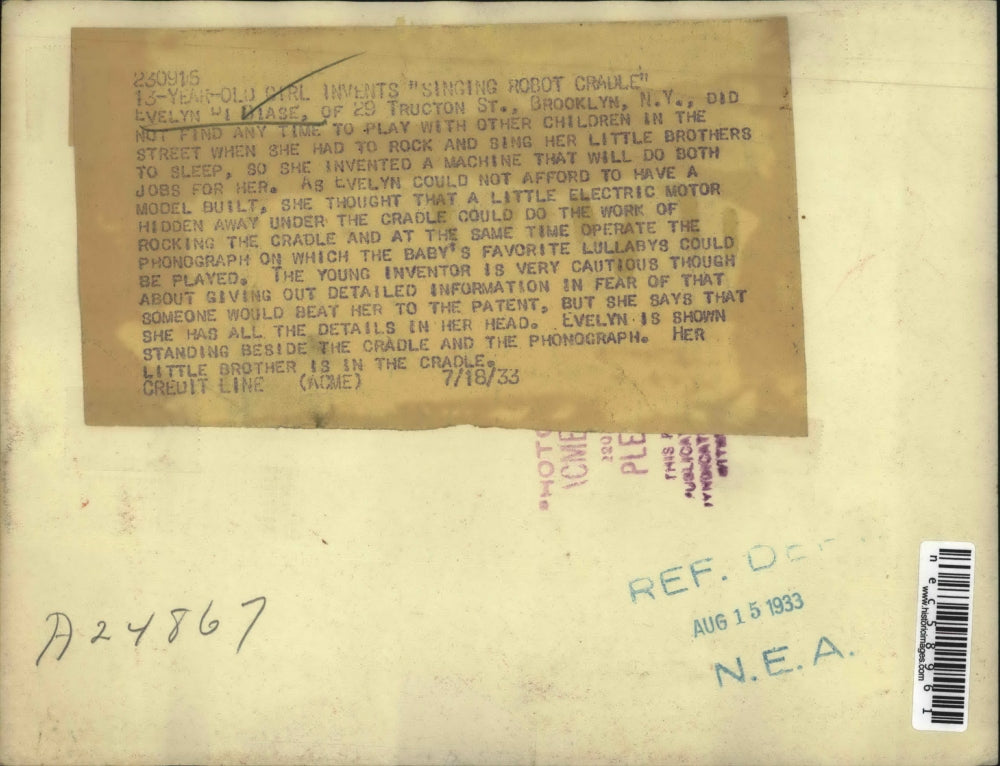 230916
13-YEAR-OLD GIRL INVENTS "SINGING ROBOT CRADLE"
EVELYN DI BIASE, OF 29 TRUCTON ST., BROOKLYN, N.Y., DID
NOT FIND ANY TIME TO PLAY WITH OTHER CHILDREN IN THE
STREET WHEN SHE HAD TO ROCK AND SING HER LITTLE BROTHERS
TO SLEEP, SO SHE INVENTED A MACHINE THAT WILL DO BOTH
JOBS FOR HER. AS EVELYN COULD NOT AFFORD TO HAVE A
MODEL BUILT, SHE THOUGHT THAT A LITTLE ELECTRIC MOTOR
HIDDEN AWAY UNDER THE CRADLE COULD DO THE WORK OF
ROCKING THE CRADLE AND AT THE SAME TIME OPERATE THE
PHONOGRAPH ON WHICH THE BABY'S FAVORITE LULLABYS COULD
BE PLAYED. THE YOUNG INVENTOR IS VERY CAUTIOUS THOUGH
ABOUT GIVING OUT DETAILED INFORMATION IN FEAR OF THAT
SOMEONE WOULD BEAT HER TO THE PATENT, BUT SHE SAYS THAT
SHE HAS ALL THE DETAILS IN HER HEAD. EVELYN IS SHOWN
STANDING BESIDE THE CRADLE AND THE PHONOGRAPH. HER
LITTLE BROTHER IS IN THE CRADLE.
CREDIT LINE (ACME) 7/18/33
PHOTO
ACME
220
PLE
THIS
REF. DE
AUG 15 1933
N.E.A.
A24867
nec58961
www.historicimages.com